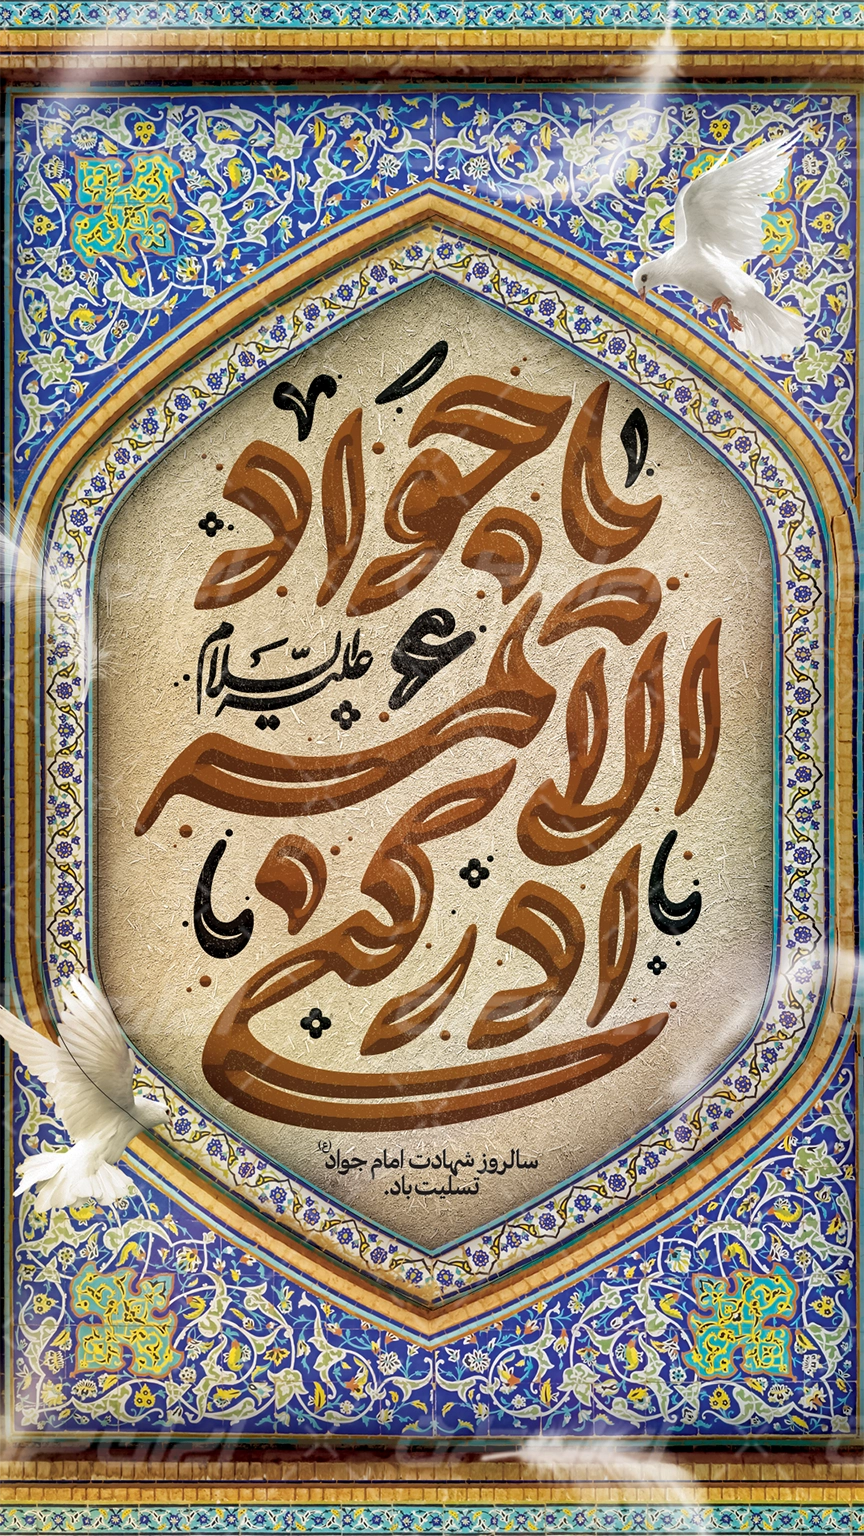 یا جواد
الائمه
علیه السلام
ادرکنی
سالروز شهادت امام جواد (ع)
تسلیت باد.